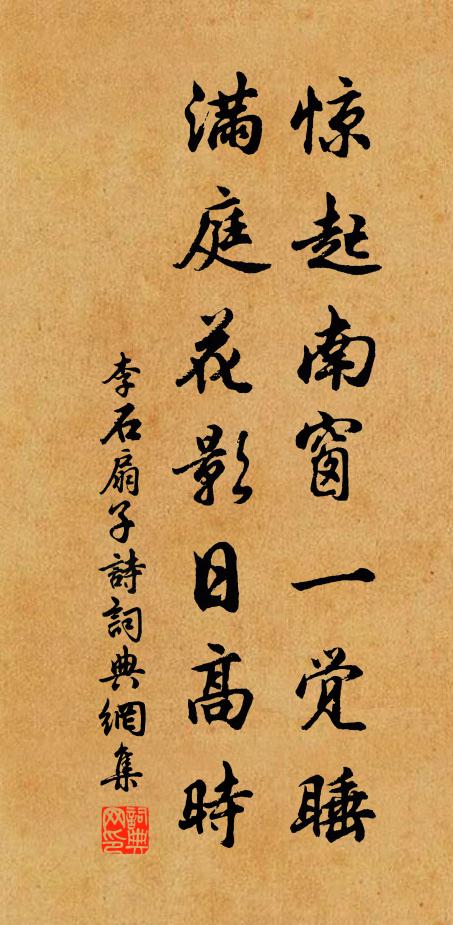 惊起南窗一觉睡
满庭花影日高時
李石扇子詩詞典網集
詞典網印